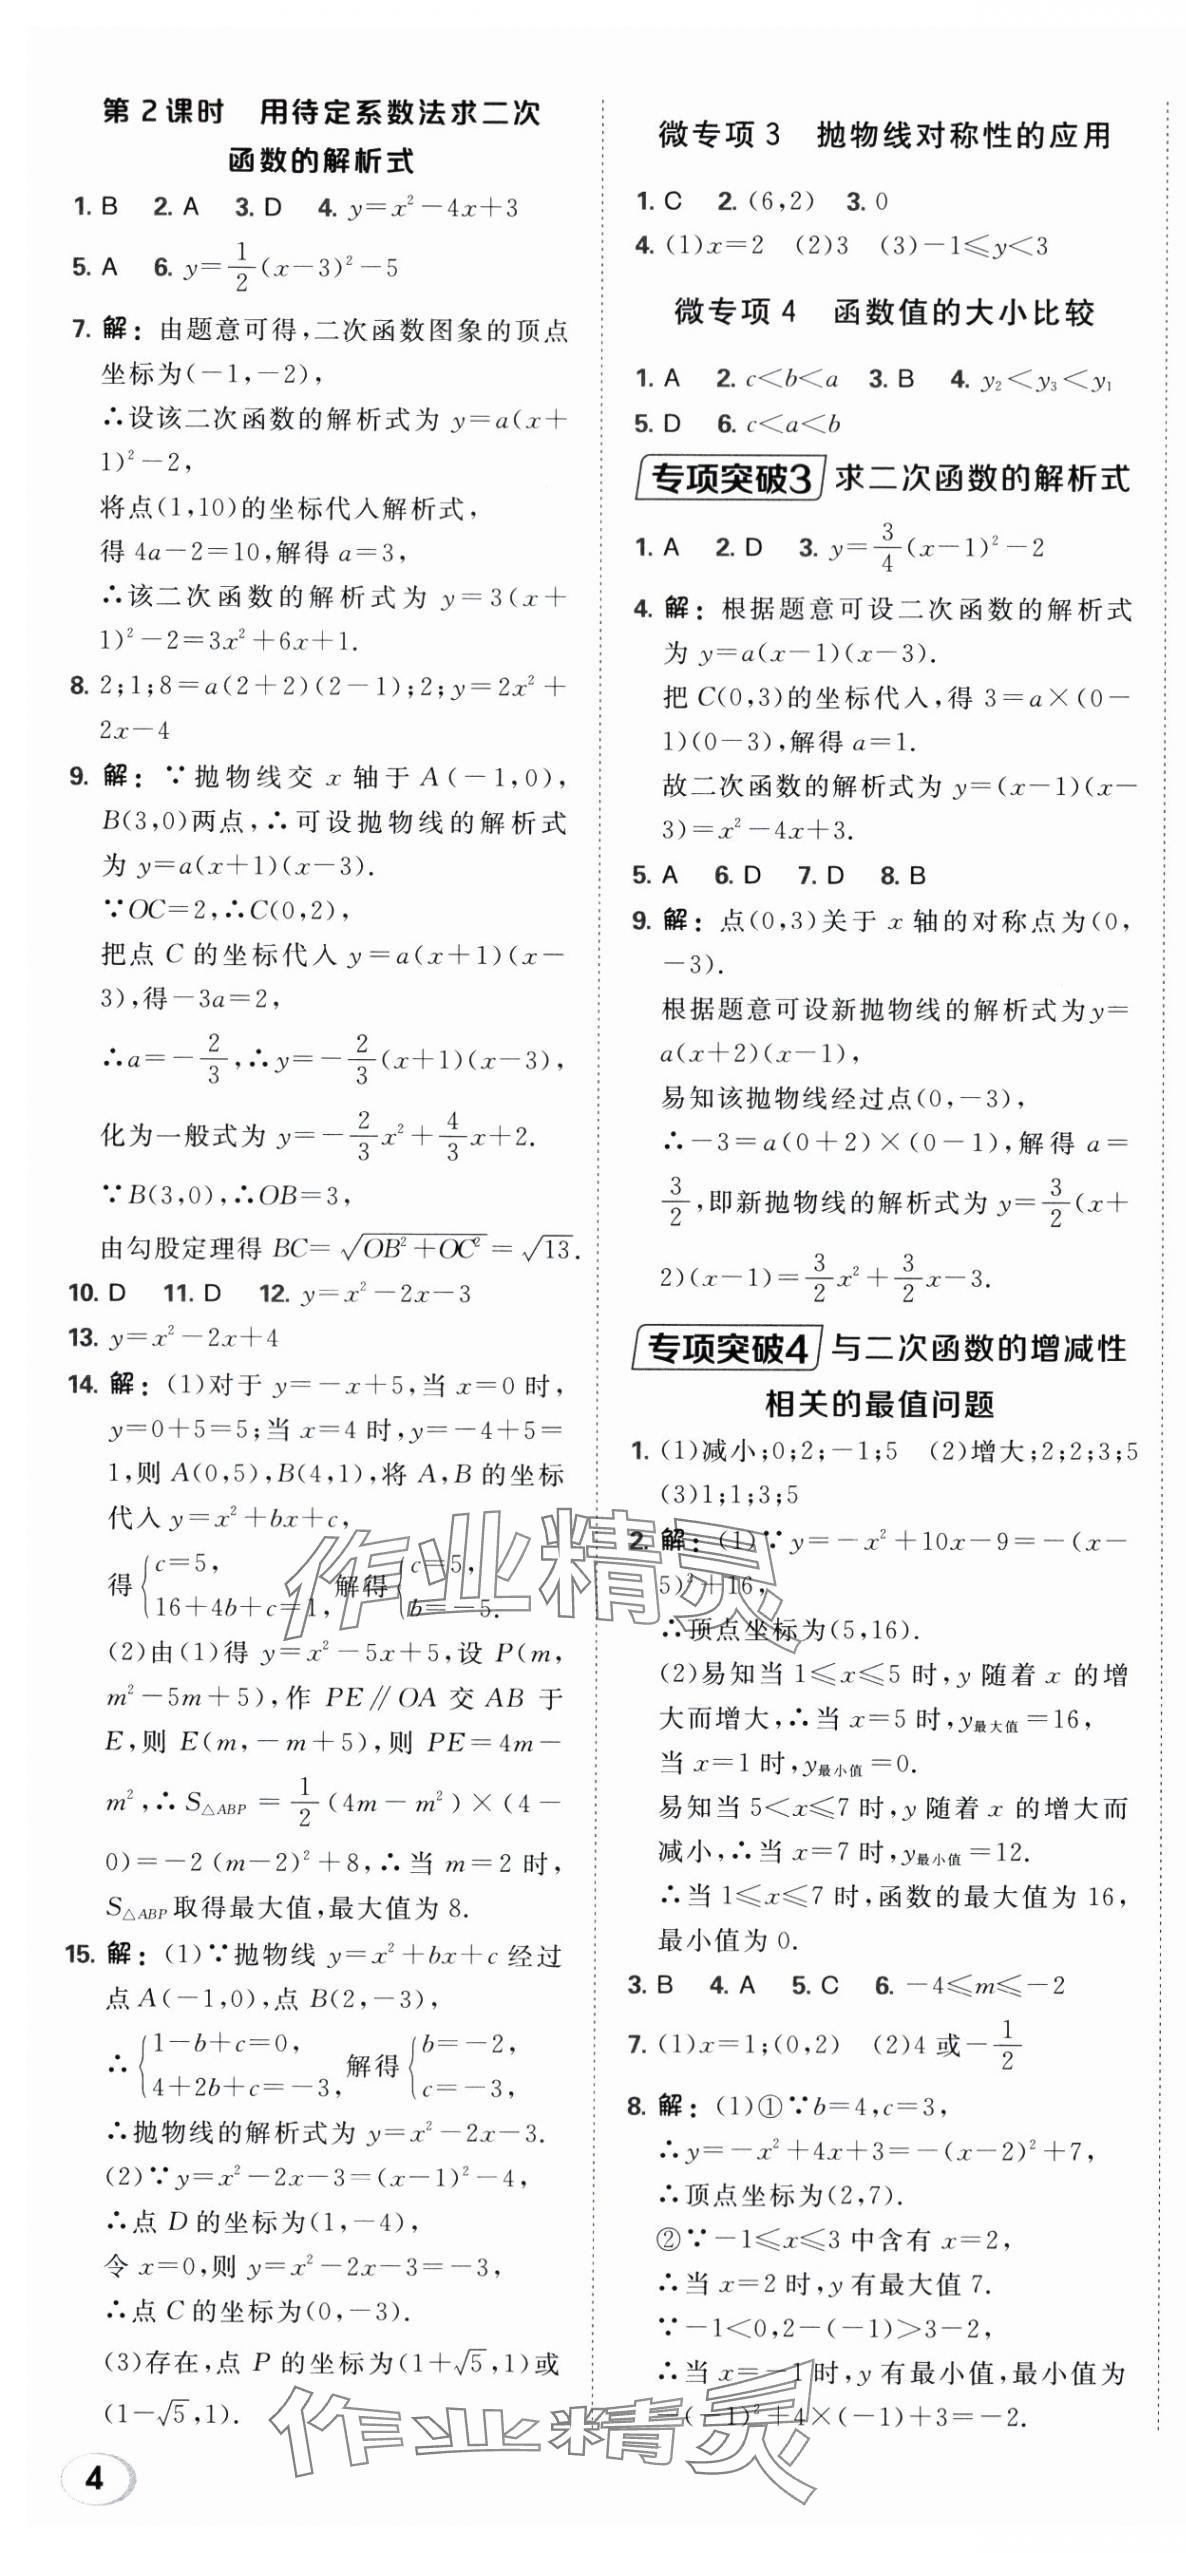 第2课时 用待定系数法求二次
函数的解析式
1. B 2. A 3. D 4. y=x²-4x+3
5. A 6. y=1/2(x-3)²-5
7. 解：由题意可得,二次函数图象的顶点
坐标为(-1,-2),
∴设该二次函数的解析式为 y=a(x+
1)²-2,
将点(1,10)的坐标代入解析式,
得 4a-2=10,解得 a=3,
∴该二次函数的解析式为 y=3(x+
1)²-2=3x²+6x+1.
8. 2;1;8=a(2+2)(2-1);2;y=2x²+
2x-4
9. 解：∵抛物线交 x 轴于 A(-1,0),
B(3,0)两点,∴可设抛物线的解析式
为 y=a(x+1)(x-3).
∵OC=2,∴C(0,2),
把点 C 的坐标代入 y=a(x+1)(x-
3),得-3a=2,
∴a=-2/3,∴y=-2/3(x+1)(x-3),
化为一般式为 y=-2/3x²+4/3x+2.
∵B(3,0),∴OB=3,
由勾股定理得 BC=√(OB²+OC²)=√13.
10. D 11. D 12. y=x²-2x-3
13. y=x²-2x+4
14. 解：(1)对于 y=-x+5,当 x=0 时,
y=0+5=5;当 x=4 时,y=-4+5=
1,则 A(0,5),B(4,1),将 A,B 的坐标
代入 y=x²+bx+c,
得{c=5, 16+4b+c=1, 解得{c=5, b=-5.
(2)由(1)得 y=x²-5x+5,设 P(m,
m²-5m+5),作 PE∥OA 交 AB 于
E,则 E(m,-m+5),则 PE=4m-
m²,∴S△ABP=1/2(4m-m²)×(4-
0)=-2(m-2)²+8,∴当 m=2 时,
S△ABP取得最大值,最大值为 8.
15. 解：(1)∵抛物线 y=x²+bx+c 经过
点 A(-1,0),点 B(2,-3),
∴{1-b+c=0, 4+2b+c=-3, 解得{b=-2, c=-3,
∴抛物线的解析式为 y=x²-2x-3.
(2)∵y=x²-2x-3=(x-1)²-4,
∴点 D 的坐标为(1,-4),
令 x=0,则 y=x²-2x-3=-3,
∴点 C 的坐标为(0,-3).
(3)存在,点 P 的坐标为(1+√5,1)或
(1-√5,1).
4
微专项3 抛物线对称性的应用
1. C 2. (6,2) 3. 0
4. (1)x=2 (2)3 (3)-1≤y<3
微专项4 函数值的大小比较
1. A 2. c<b<a 3. B 4. y₂<y₃<y₁
5. D 6. c<a<b
专项突破3 求二次函数的解析式
1. A 2. D 3. y=3/4(x-1)²-2
4. 解：根据题意可设二次函数的解析式
为 y=a(x-1)(x-3).
把 C(0,3)的坐标代入,得 3=a×(0-
1)(0-3),解得 a=1.
故二次函数的解析式为 y=(x-1)(x-
3)=x²-4x+3.
5. A 6. D 7. D 8. B
9. 解：点(0,3)关于 x 轴的对称点为(0,
-3).
根据题意可设新抛物线的解析式为y=
a(x+2)(x-1),
易知该抛物线经过点(0,-3),
∴-3=a(0+2)×(0-1),解得 a=
3/2,即新抛物线的解析式为 y=3/2(x+
2)(x-1)=3/2x²+3/2x-3.
专项突破4 与二次函数的增减性
相关的最值问题
1. (1)减小;0;2;-1;5 (2)增大;2;2;3;5
(3)1;1;3;5
2. 解：(1)∵y=-x²+10x-9=-(x-
5)²+16,
∴顶点坐标为(5,16).
(2)易知当 1≤x≤5 时,y 随着 x 的增
大而增大,∴当 x=5 时,y最大值=16,
当 x=1 时,y最小值=0.
易知当 5<x≤7 时,y 随着 x 的增大而
减小,∴当 x=7 时,y最小值=12.
∴当 1≤x≤7 时,函数的最大值为 16,
最小值为 0.
3. B 4. A 5. C 6. -4≤m≤-2
7. (1)x=1;(0,2) (2)4 或-1/2
8. 解：(1)①∵b=4,c=3,
∴y=-x²+4x+3=-(x-2)²+7,
∴顶点坐标为(2,7).
②∵-1≤x≤3 中含有 x=2,
∴当 x=2 时,y 有最大值 7.
∵-1<0,2-(-1)>3-2,
∴当 x=-1 时,y 有最小值,最小值为
-(-1)²+4×(-1)+3=-2.
作业精灵
作业精灵